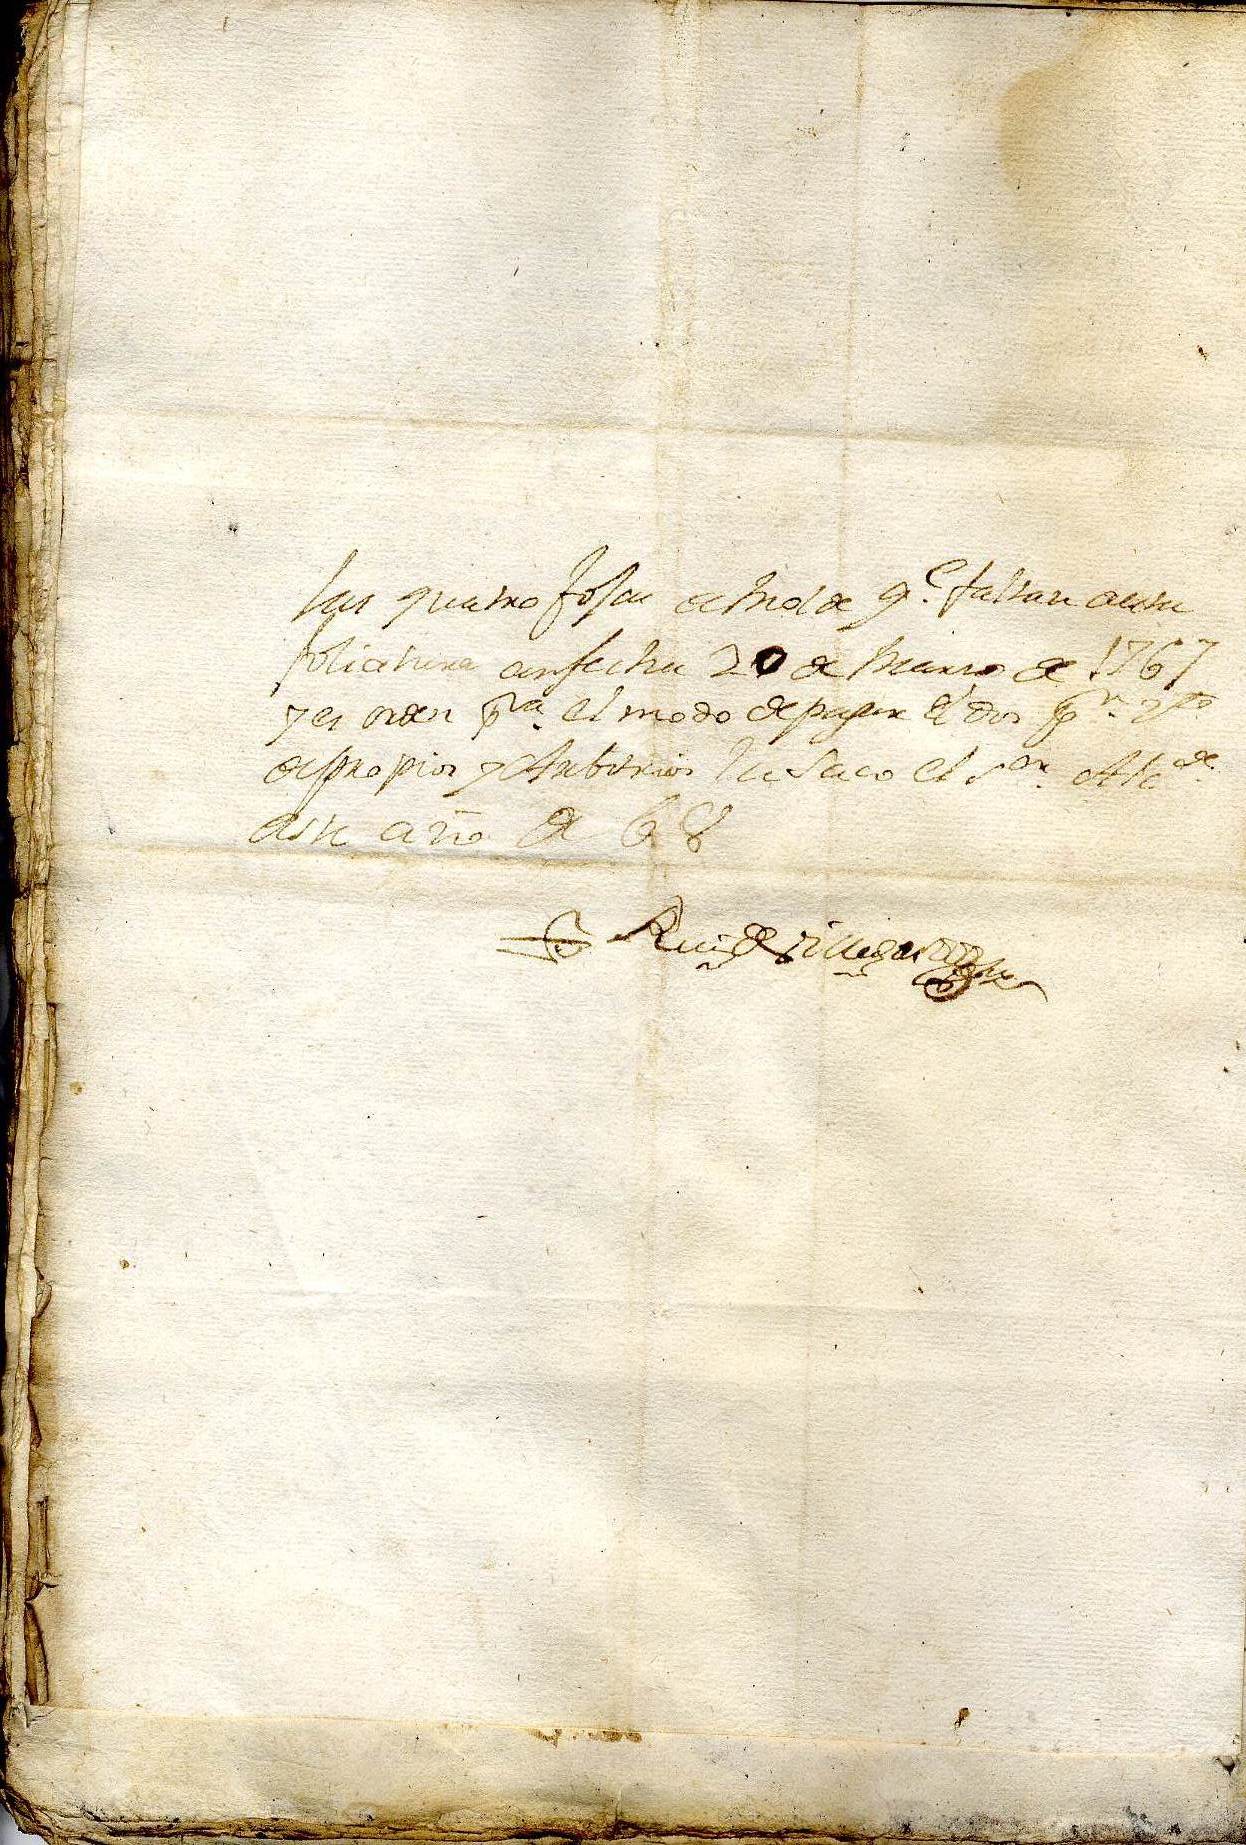 las quatro fojas de molde q.e faltan a esta
foliatura con fecha 20 de Marzo de 1767
y es orden p.ra el modo de pagar el dos p.r 
de propios y Arbitrios la saco el s.or Alc.de
deste año de 68
Ruiz de Villegas